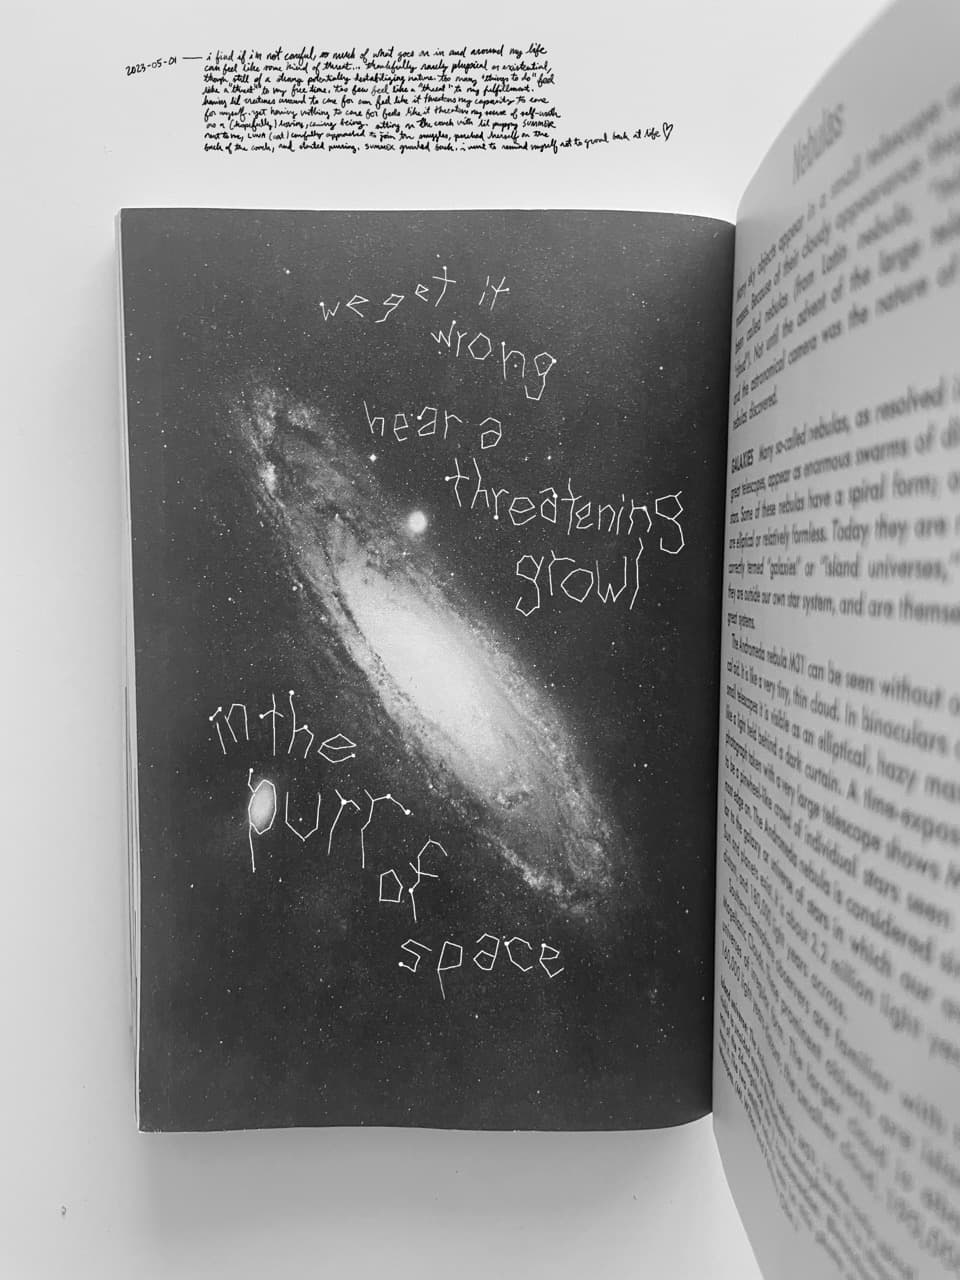 2023-05-01 — i find if i'm not careful, so much of what goes on in and around my life
can feel like some kind of threat... thankfully rarely physical or existential,
though still of a strange potentially destabilizing nature. too many "things to do" feel
like a "threat" to my free time, too few feel like a "threat" to my fulfillment.
having lil creatures around to care for can feel like it threatens my capacity to care
for myself, yet having nothing to care for feels like it threatens my sense of self-worth
as a (hopefully) loving, caring being. sitting on the couch with lil puppy summer
next to me, (cat) carefully approached to join the snuggles, perched herself on the
back of the couch, and started purring. summer growled back. i want to remind myself not to growl back at life ♡
we get it
wrong
hear a
threatening
growl
in the
purr
of
space
Nebulas
objects appear in a small telescope
Because of their cloudy appearance
been called nebulas (from Latin nebula,
"cloud"). Not until the advent of the large
and the astronomical camera was the nature of
nebulas discovered.
GALAXIES Many so-called nebulas, as resolved
great telescopes, appear as enormous swarms of
stars. Some of these nebulas have a spiral form;
are elliptical or relatively formless. Today they are
correctly termed "galaxies" or "island universes,"
they are outside our own star system, and are
great systems.
The Andromeda nebula M31 can be seen without
aid. It is like a very tiny, thin cloud. In binoculars
small telescopes it is visible as an elliptical, hazy
like a light held behind a dark curtain. A
photograph taken with a very large telescope shows
to be a pinwheel-like crowd of individual stars seen
most edge on. The Andromeda nebula is considered
lar to the galaxy or universe of stars in which our
Sun and planets exist. It is about 2.2 million light
distant, and 180,000 light years across.
Southern-hemisphere observers are familiar with
Magellanic Clouds. These prominent objects are
universes of irregular form. The larger cloud is
160,000 light years distant; the smaller cloud, 190,000